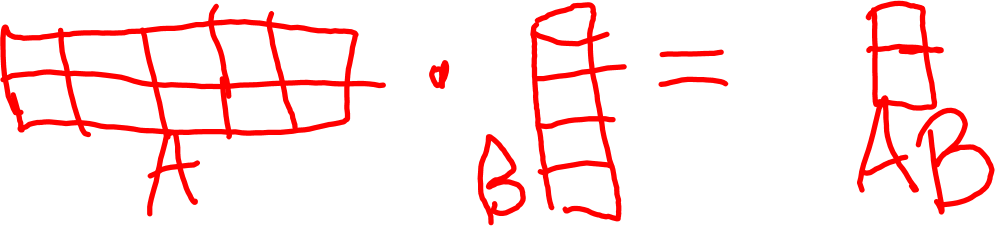 A · B = AB